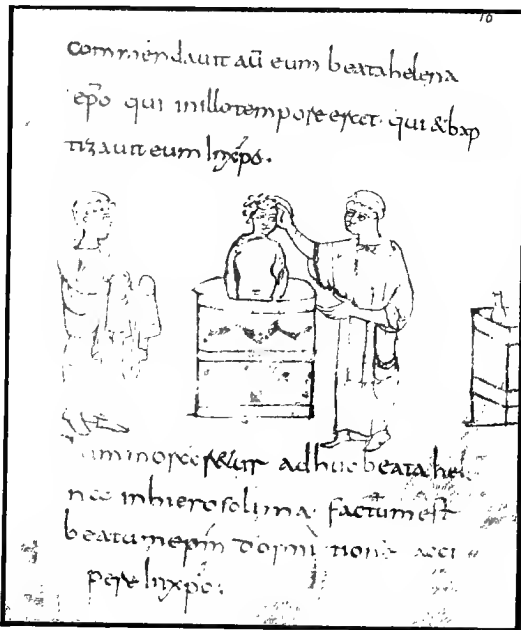 10
commendavit aū eum beata helena
ep̄o qui in illo tempore erat. qui & bap
tizavit eum in xp̄o.
adhuc beata hel
in hierosolima. factum est
beatum ep̄m dormitionē acci
pere in xp̄o.